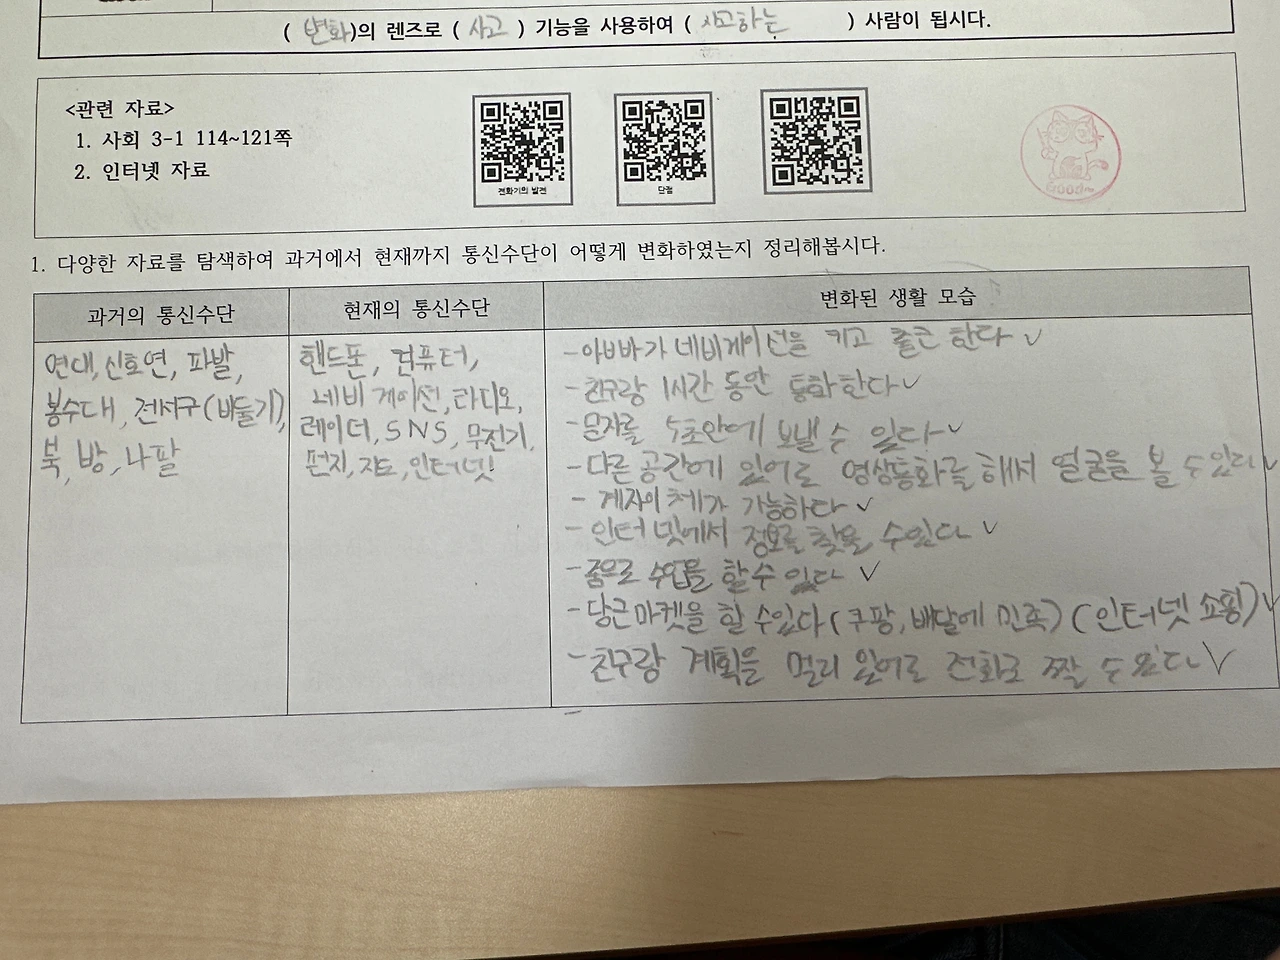 ( 변화)의 렌즈로 ( 사고 ) 기능을 사용하여 ( 사고하는 ) 사람이 됩시다.
<관련 자료>
1. 사회 3-1 114~121쪽
2. 인터넷 자료
전화기의 발전
단점
Good
1. 다양한 자료를 탐색하여 과거에서 현재까지 통신수단이 어떻게 변화하였는지 정리해봅시다.
과거의 통신수단
현재의 통신수단
변화된 생활 모습
연대, 신호연, 파발,
봉수대, 전서구(비둘기),
북, 방, 나팔
핸드폰, 컴퓨터,
네비게이션, 라디오,
레이더, SNS, 무전기,
편지, 지도, 인터넷
-아빠바가 네비게이션을 키고 출근 한다 ✓
-친구랑 1시간 동안 통화한다 ✓
-문자를 5초안에 보낼 수 있다 ✓
-다른 공간에 있어도 영상통화를 해서 얼굴을 볼 수 있다 ✓
- 계좌이체가 가능하다 ✓
-인터넷에서 정보를 찾을 수 있다 ✓
-줌으로 수업을 할 수 있다 ✓
-당근마켓을 할 수 있다 (쿠팡, 배달에 민족) (인터넷 쇼핑) ✓
-친구랑 계획을 멀리 있어도 전화로 짤 수 있다 ✓